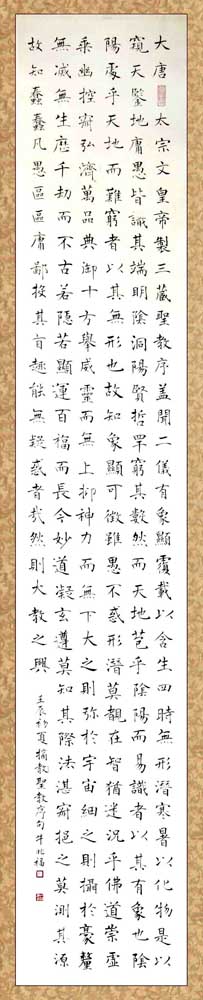 大唐 太宗文皇帝製三藏聖教序蓋聞二儀有象顯覆載以含生四時無形潛寒暑以化物是以
窺天鑒地庸愚皆識其端明陰洞陽賢哲罕窮其數然而天地苞乎陰陽而易識者以其有象也陰
陽處乎天地而難窮者以其無形也故知象顯可徵雖愚不惑形潛莫覩在智猶迷況乎佛道崇虛
乘幽控寂弘濟萬品典御十方舉威靈而無上抑神力而無下大之則彌於宇宙細之則攝於豪釐
無滅無生歷千劫而不古若隱若顯運百福而長今妙道凝玄遵莫知其際法湛寂挹之莫測其源
故知蠢蠢凡愚區區庸鄙投其旨趣能無疑惑者哉然則大教之興
壬辰初夏摘敬聖教序句牛兆福